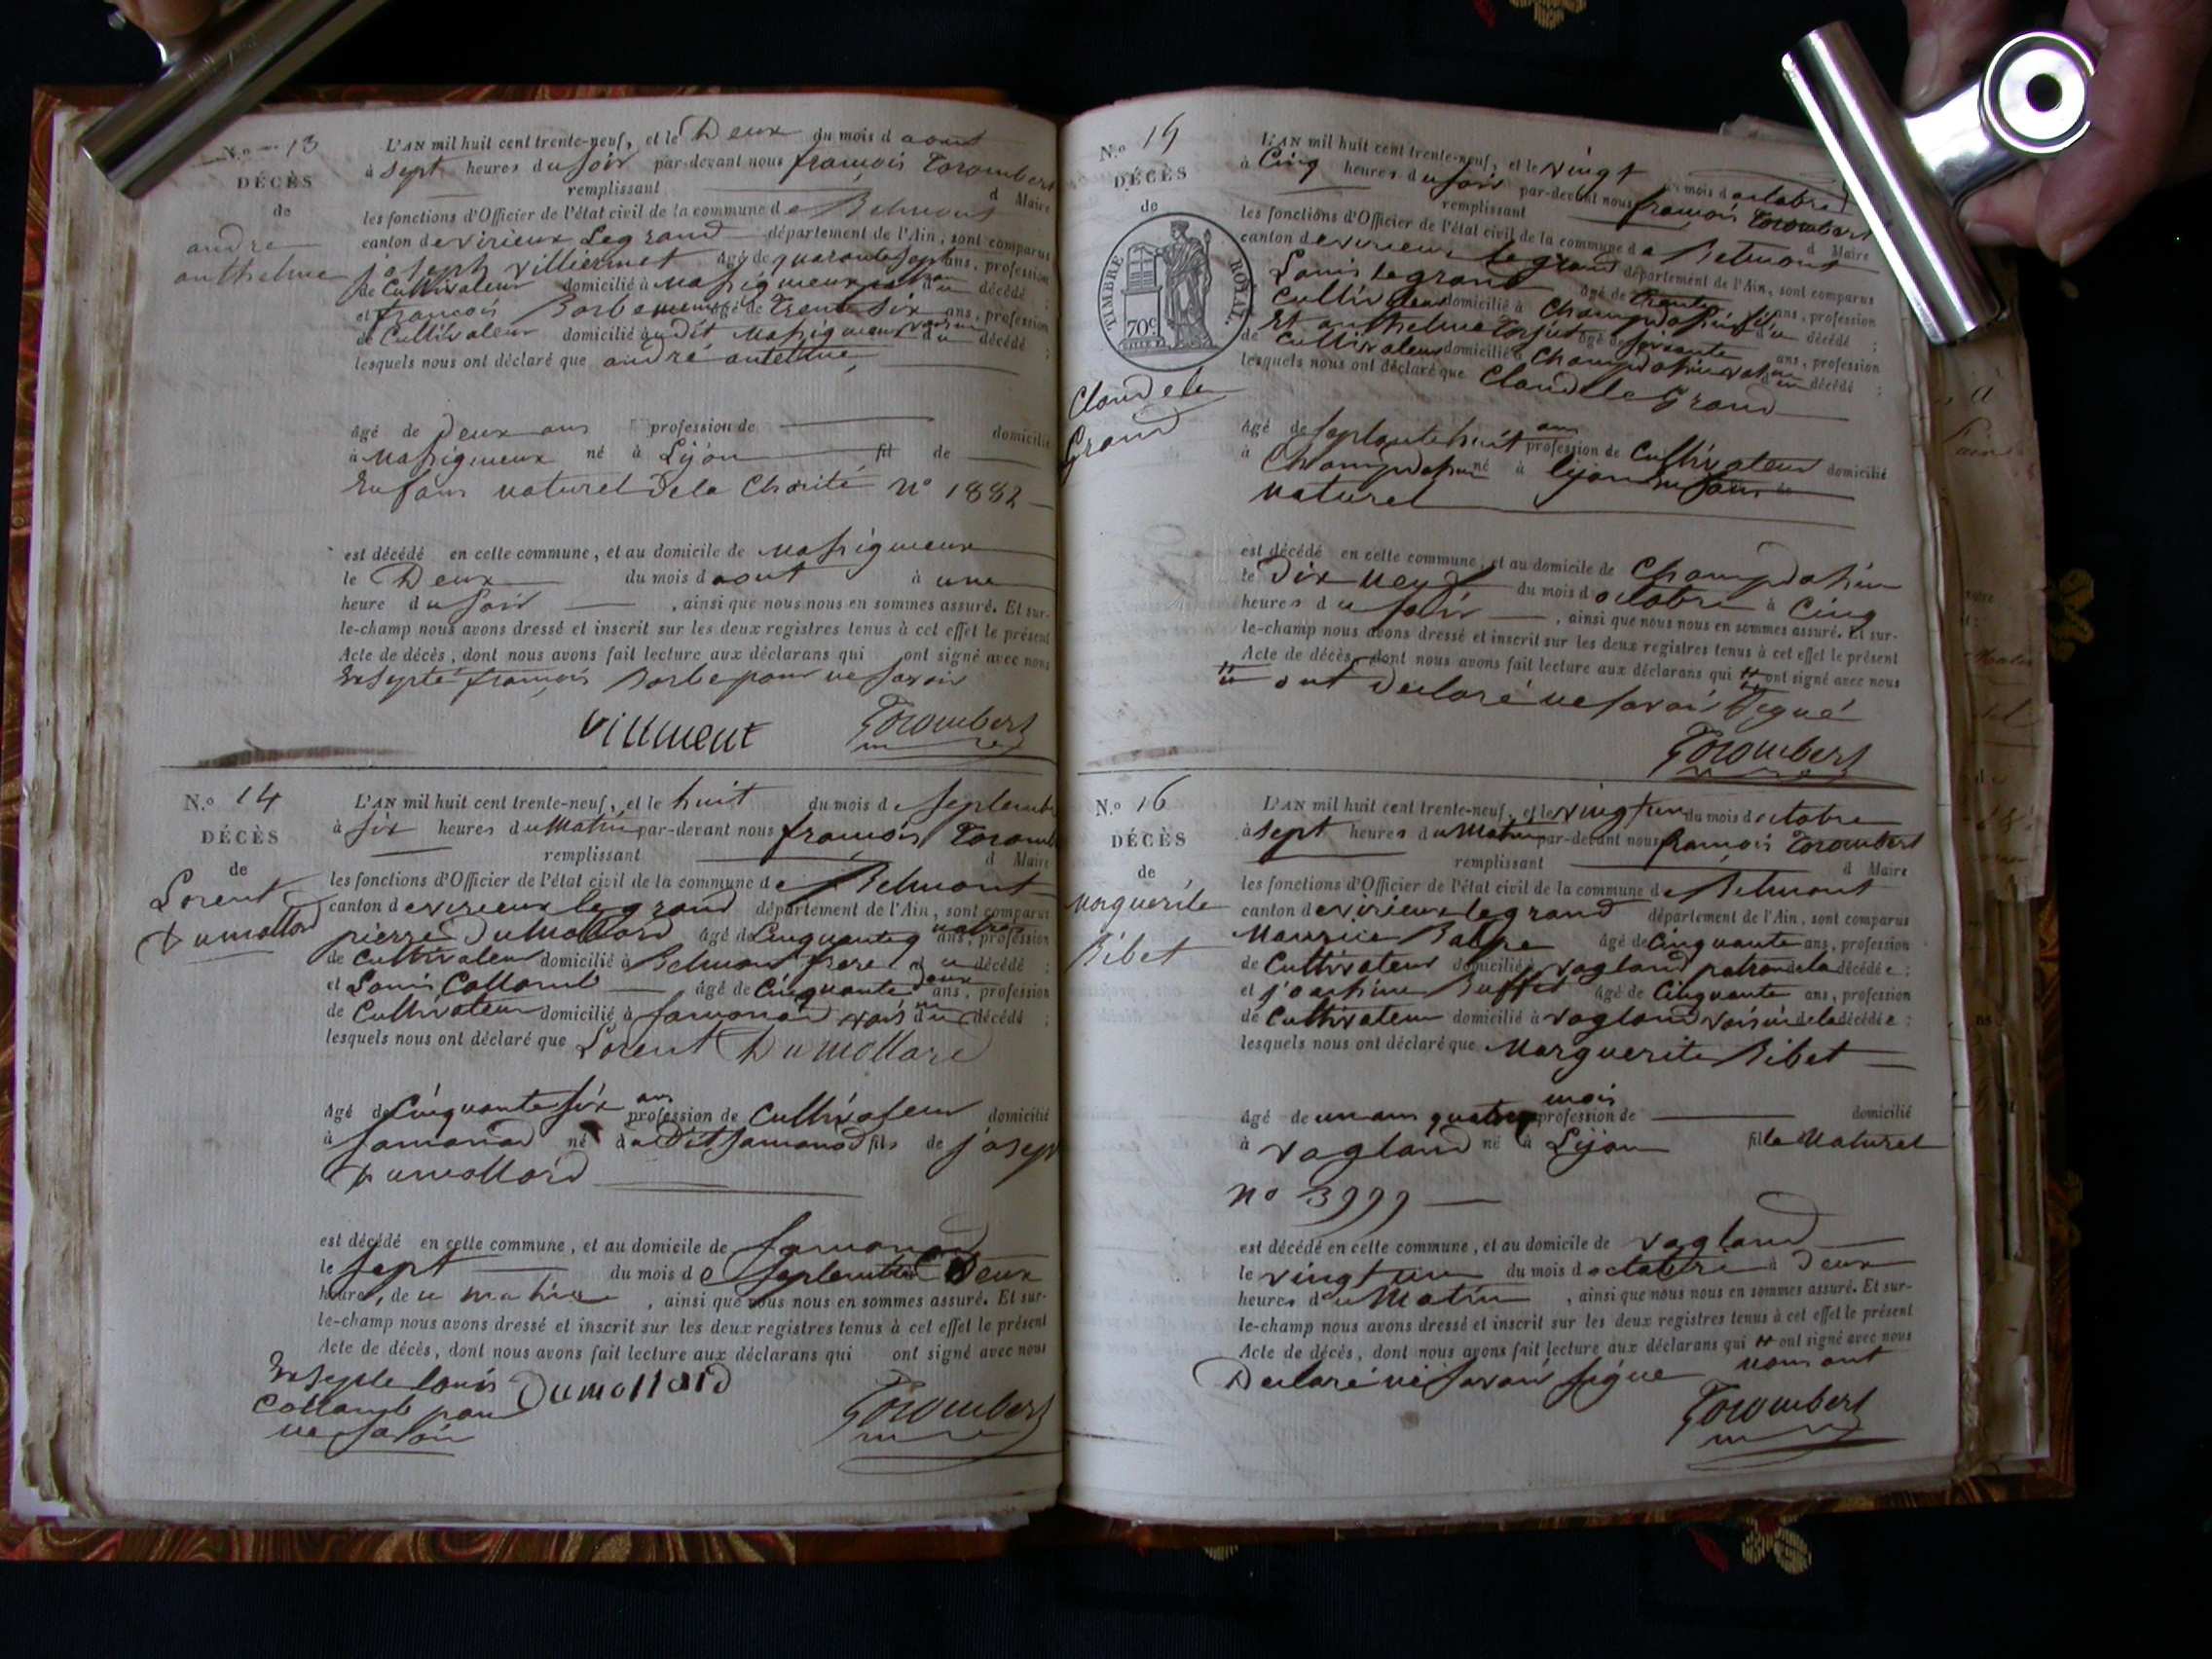 N.º 13
DÉCÈS
de
andre
anthelme
L'AN mil huit cent trente-neuf, et le Deux du mois d aout
à sept heures du soir par-devant nous françois Torombert
remplissant d Maire
les fonctions d'Officier de l'état civil de la commune de Belmont
canton de virieux Le grand département de l'Ain, sont comparus
joseph villiermet âgé de quarante sept ans, profession
de Cultivateur domicilié à Massigneux patron du décédé ;
et françois Borbe âgé de trente six ans, profession
de Cultivateur domicilié audit Massigneux voisin du décédé ;
lesquels nous ont déclaré que andré antelme,
âgé de Deux ans profession de domicilié
à Massigneux né à Lijon fil de
Enfans naturel de la Charité nº 1882
est décédé en cette commune, et au domicile de Massigneux
le Deux du mois d aout à une
heure du soir , ainsi que nous nous en sommes assuré. Et sur-
le-champ nous avons dressé et inscrit sur les deux registres tenus à cet effet le présent
Acte de décès, dont nous avons fait lecture aux déclarans qui ont signé avec nous
Exsepté françois Borbe pour ne savoir
Villment Torombert
N.º 14
DÉCÈS
de
Lorent
Dumollard
L'AN mil huit cent trente-neuf, et le huit du mois de Septembre
à six heures du Matin par-devant nous françois Torombert
remplissant d Maire
les fonctions d'Officier de l'état civil de la commune de Belmont
canton de virieux le grand département de l'Ain, sont comparus
pierre DuMollard âgé de Cinquante quatre ans, profession
de Cultivateur domicilié à Belmont frere du décédé ;
et Louis Collomb âgé de Cinquante deux ans, profession
de Cultivateur domicilié à samonod voisin du décédé ;
lesquels nous ont déclaré que Lorent Dumollard
âgé de Cinquante six ans profession de Cultivateur domicilié
à samonod né au Dit samonod fils de joseph
Dumollard
est décédé en cette commune, et au domicile de samonod
le sept du mois de septembre Deux
heures, de u matin , ainsi que nous nous en sommes assuré. Et sur-
le-champ nous avons dressé et inscrit sur les deux registres tenus à cet effet le présent
Acte de décès, dont nous avons fait lecture aux déclarans qui ont signé avec nous
Exsepte louis
Collomb pour
ne savoir
Dumollard Torombert
N.º 15
DÉCÈS
de
TIMBRE ROYAL.
70c
Claude le
Grand
L'AN mil huit cent trente-neuf, et le vingt mois d octobre
à Cinq heures du soir par-devant nous françois Torombert
remplissant d Maire
les fonctions d'Officier de l'état civil de la commune de Belmont
canton de virieux le grand département de l'Ain, sont comparus
Louis le grand âgé de trente ans, profession
Cultivateur domicilié à fils du décédé ;
Et anthelme âgé de soixante ans, profession
de Cultivateur domicilié à du décédé ;
lesquels nous ont déclaré que Claude le Grand
âgé de septante huit ans profession de Cultivateur domicilié
à né à lijon enfans de
naturel
est décédé en cette commune, et au domicile de
le Dix neuf du mois d octobre à Cinq
heures du soir , ainsi que nous nous en sommes assuré. Et sur-
le-champ nous avons dressé et inscrit sur les deux registres tenus à cet effet le présent
Acte de décès, dont nous avons fait lecture aux déclarans qui ont signé avec nous
ont declaré ne savoir signé
Torombert
N.º 16
DÉCÈS
de
Marguerite
Bibet
L'AN mil huit cent trente-neuf, et le vingt un du mois d octobre
à sept heures du Matin par-devant nous françois Torombert
remplissant d Maire
les fonctions d'Officier de l'état civil de la commune de Belmont
canton de virieux le grand département de l'Ain, sont comparus
Maurice âgé de Cinquante ans, profession
de Cultivateur domicilié à vogland patron de la décédée ;
et joachim Buffet âgé de Cinquante ans, profession
de Cultivateur domicilié à vogland voisin de la décédée ;
lesquels nous ont déclaré que Marguerite Bibet
âgé de un ans quatre mois profession de domicilié
à vogland né à Lijon fille Naturel
no 3999
est décédé en cette commune, et au domicile de vogland
le vingt un du mois d octobre à Deux
heures du Matin , ainsi que nous nous en sommes assuré. Et sur-
le-champ nous avons dressé et inscrit sur les deux registres tenus à cet effet le présent
Acte de décès, dont nous avons fait lecture aux déclarans qui ont signé avec nous
Declaré ne savoir signe nous ont
Torombert